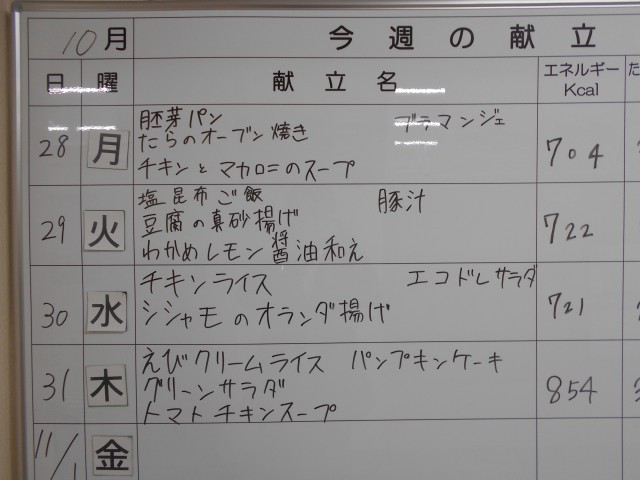 10月 今週の献立
日 曜 献立名 エネルギー Kcal た
28 月 胚芽パン ブラマンジェ 704
たらのオーブン焼き
チキンとマカロニのスープ
29 火 塩昆布ご飯 豚汁 722
豆腐の真砂揚げ
わかめレモン醤油和え
30 水 チキンライス エコドレサラダ 721
シシャモのオランダ揚げ
31 木 えびクリームライス パンプキンケーキ 854
グリーンサラダ
トマトチキンスープ
11/1 金